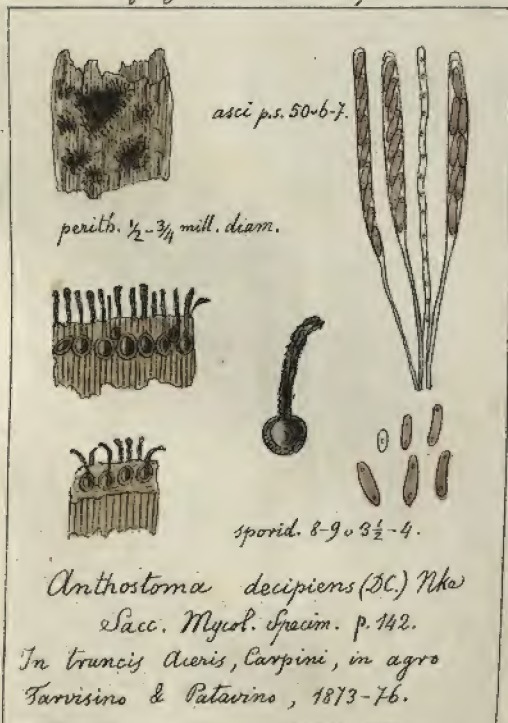 asci p.s. 50 ѵ 6-7.
perith. ½-¾ mill. diam.
sporid. 8-9 ѵ 3½-4.
Anthostoma decipiens (DC.) Nke
Sacc. Mycol. Specim. p. 142.
In truncis Aceris, Carpini, in agro
Tarvisino & Patavino, 1873-76.